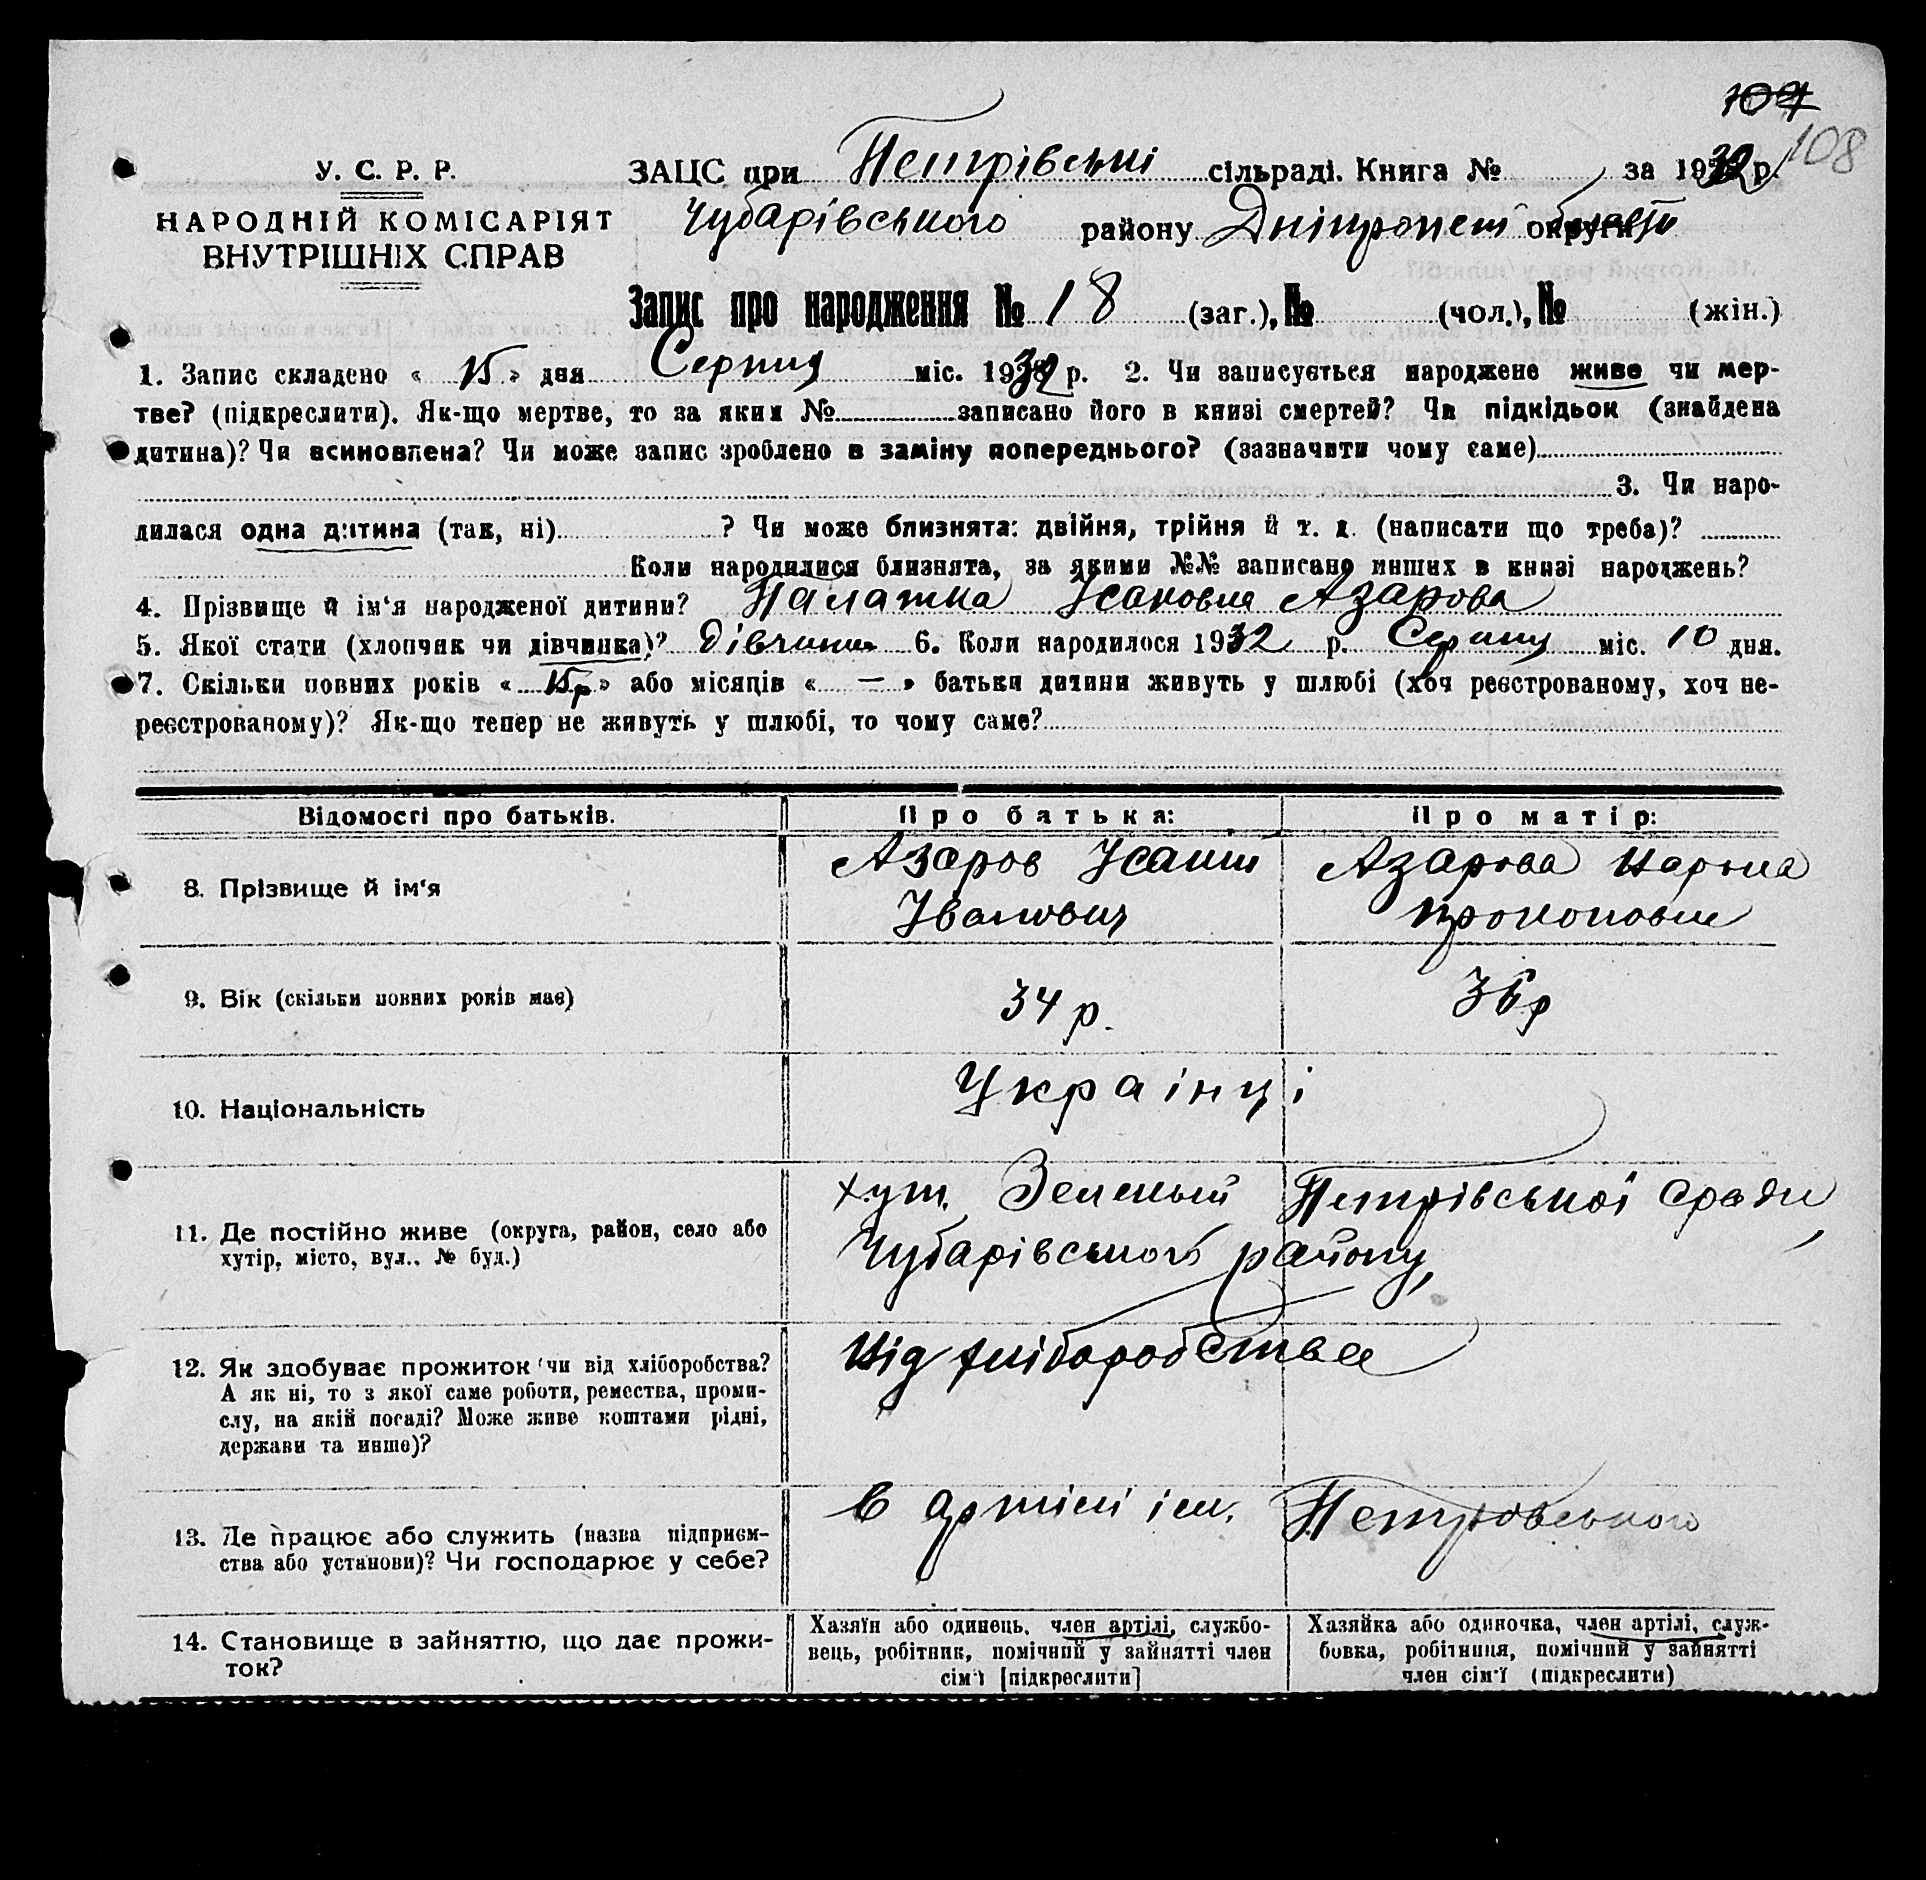 107
108
У. С. Р. Р.
НАРОДНІЙ КОМІСАРІЯТ
ВНУТРІШНІХ СПРАВ
ЗАЦС при Петрівські сільраді. Книга № за 1932 р.
Чубарівського району Дніпропет области
Запис про народження № 18 (заг.), № (чол.), № (жін.)
1. Запис складено « 15 » дня Серпня міс. 1932 р. 2. Чи записується народжене живе чи мер-
тве? (підкреслити). Як-що мертве, то за яким № записано його в книзі смертей? Чи підкідьок (знайдена
дитина)? Чи всиновлена? Чи може запис зроблено в заміну попереднього? (зазначити чому саме)
3. Чи наро-
дилася одна дитина (так, ні) ? Чи може близнята: двійня, трійня й т. д. (написати що треба)?
Коли народилися близнята, за якими №№ записано инших в книзі народжень?
4. Прізвище й ім'я народженої дитини? Наталка Ісаковна Азарова
5. Якої стати (хлопчик чи дівчинка)? Дівчина 6. Коли народилося 1932 р. Серпня міс. 10 дня.
7. Скільки повних років « 15р » або місяців « — » батьки дитини живуть у шлюбі (хоч реєстрованому, хоч не-
реєстрованому)? Як-що тепер не живуть у шлюбі, то чому саме?
Відомості про батьків.
Про батька:
Про матір:
8. Прізвище й ім'я
Азаров
Іванович
Азарова Марина
Прокоповна
9. Вік (скільки повних років має)
34 р.
36р
10. Національність
Українці
11. Де постійно живе (округа, район, село або
хутір, місто, вул., № буд.)
хут. Зеленый Петрівської сради,
Чубарівського району,
12. Як здобуває прожиток чи від хліборобства?
А як ні, то з якої саме роботи, ремества, проми-
слу, на якій посаді? Може живе коштами рідні,
держави та инше)?
Від хліборобства
13. Де працює або служить (назва підприєм-
ства або установи)? Чи господарює у себе?
В артілі ім. Петровського
14. Становище в зайняттю, що дає прожи-
ток?
Хазяїн або одинець, член артілі, службо-
вець, робітник, помічний у зайнятті член
сім'ї [підкреслити]
Хазяйка або одиночка, член артілі, служ-
бовка, робітниця, помічний у зайнятті
член сім'ї (підкреслити)